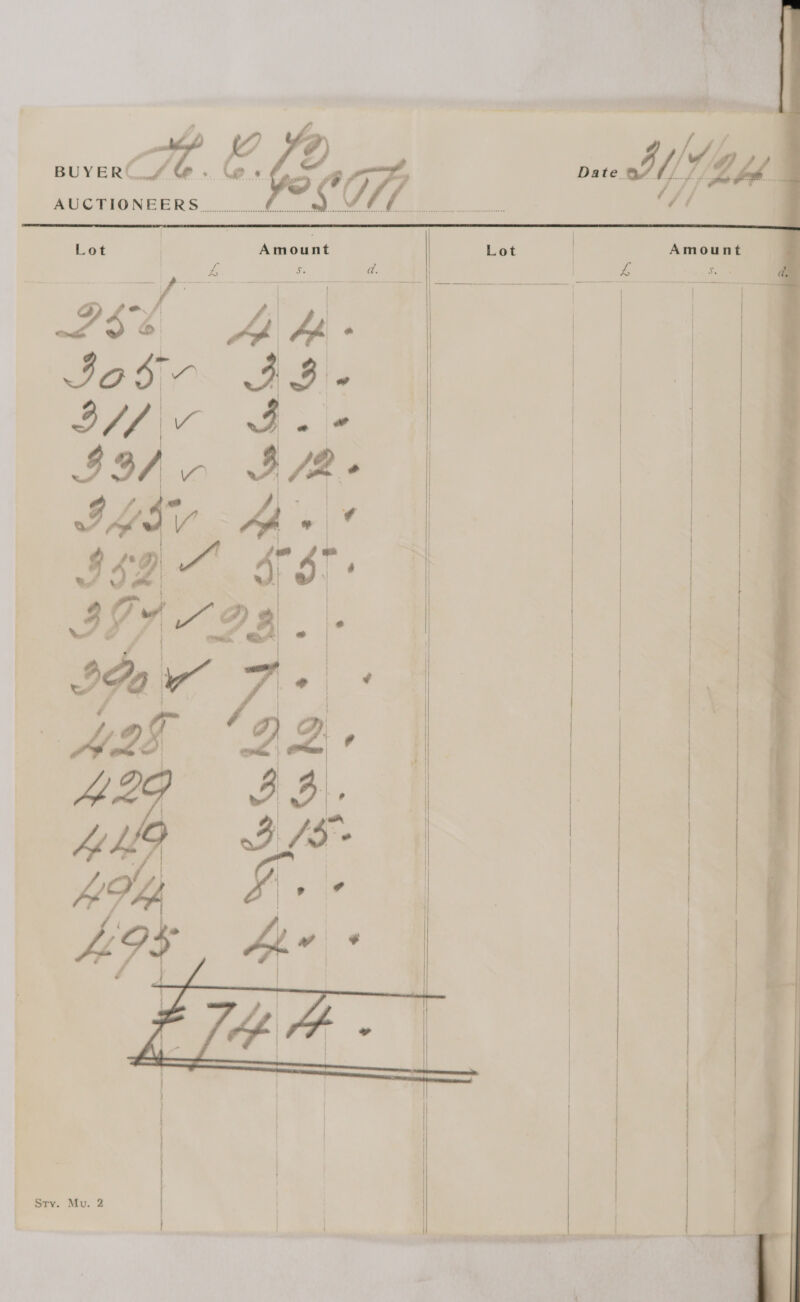 BUYER
Date 31/7/24
AUCTIONEERS
Lot Amount Lot Amount
£ s. d. £ s. d.
256 4 4 .
305 ✓ 3 3 .
311 ✓ 3 . .
331 ✓ 3 12 .
345 ✓ 4 . .
352 ✓ 5 5 .
387 ✓ 23 . .
390 ✓ 7 . .
428 2 2 .
429 3 3 .
449 3 15 .
494 8 . .
495 4 . .
£ 74 4 .
Sty. Mu. 2